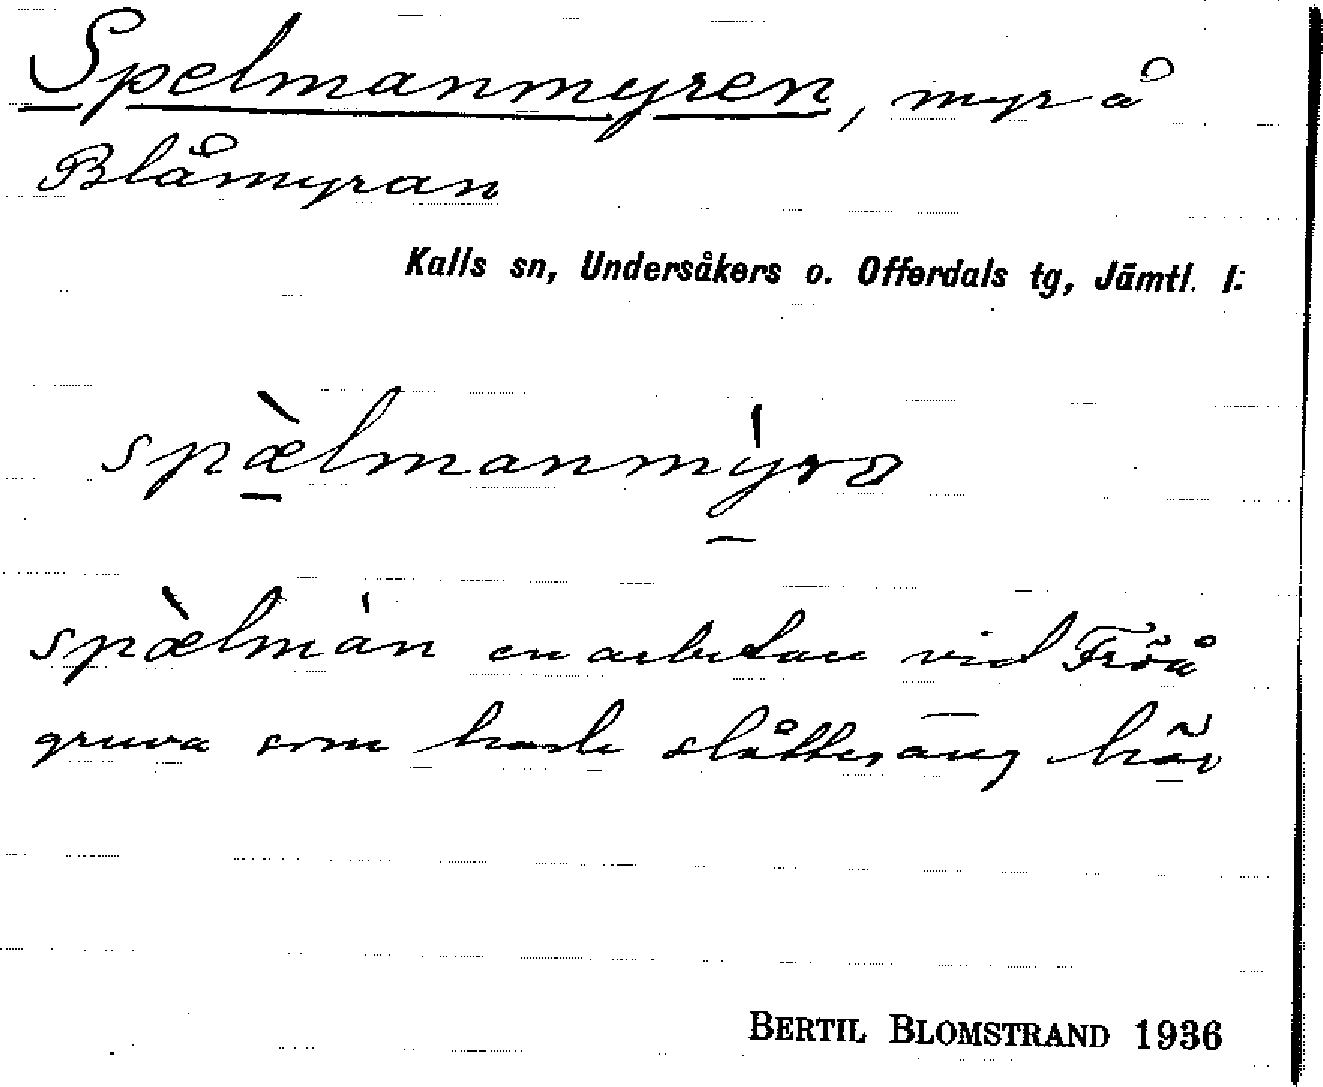 Spelmanmyren, myr å
Blåmyran
Kalls sn, Undersåkers o. Offerdals tg, Jämtl. l:
spæ̀lmanmýrɑ
spæ̀lmán en arbetare vid Fröå
gruva som hade slåtteräng här
BERTIL BLOMSTRAND 1936